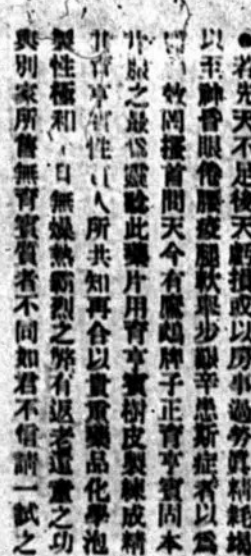 ●若先天不足後天虧損或以房事過勞真精耗
以至神昏眼倦腰痠腿軟舉步艱辛患斯症者以為
效罔搔首問天今有鷹鷓牌子正育亨賓固本
片服之最為靈驗此藥片用育亨賓樹皮製練成精
育亨賓性人所共知再合以貴重藥品化學泡
製性極和自無燥熱霸烈之弊有返老還童之功
與別家所售無育賓質者不同如君不信請一試之